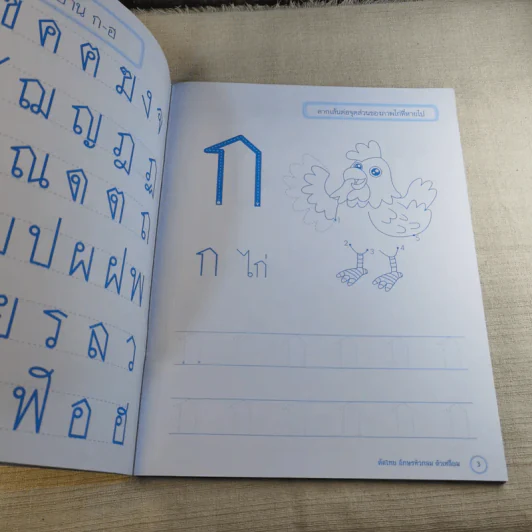 อ่าน ก-ฮ
ค ฅ ฆ ง
ฌ ญ ฎ ฏ
ณ ด ต ถ
ป ผ ฝ พ
ย ร ล ว
ฬ อ ฮ
ลากเส้นต่อจุดส่วนของภาพไก่ที่หายไป
ก
1
2 3 4
5
ก ไก่
คัดไทย อักษรหัวกลม ตัวเหลี่ยม 3